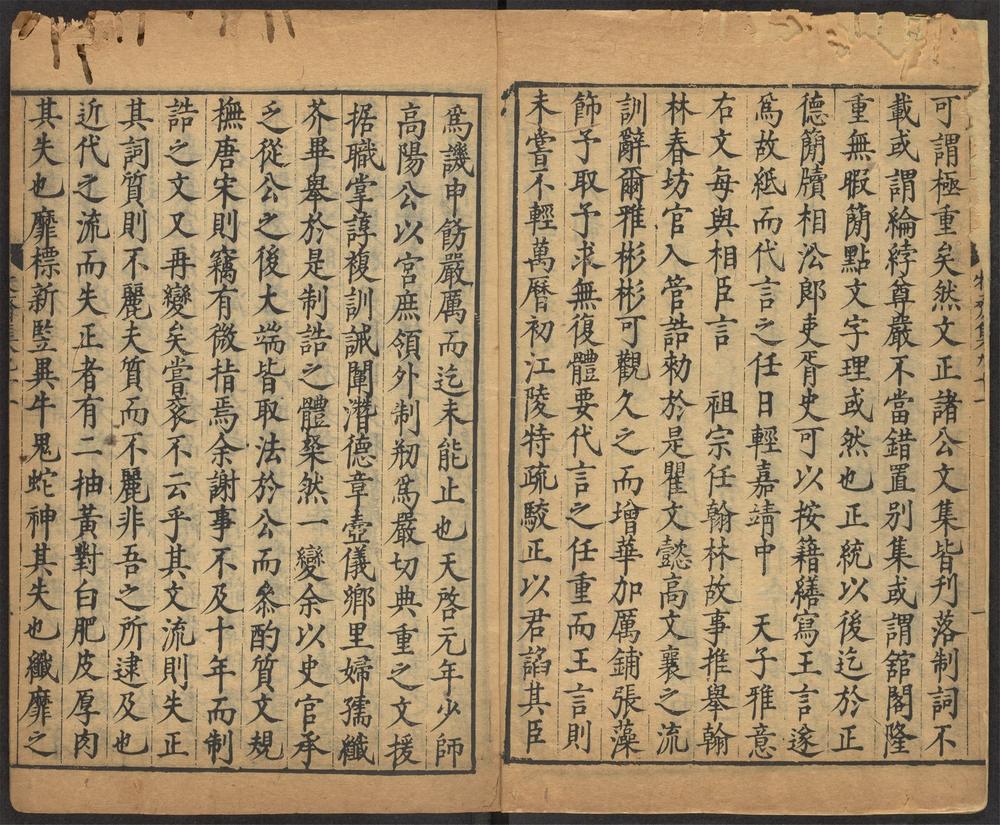 可謂極重矣然文正諸公文集皆刊落制詞不
載或謂綸綍尊嚴不當錯置别集或謂舘閣隆
重無暇簡點文字理或然也正統以後迄於正
德簡牘相沿郎吏胥史可以按籍繕寫王言遂
爲故紙而代言之任日輕嘉靖中　天子雅意
右文每與相臣言　祖宗任翰林故事推舉翰
林春坊官入管誥勑於是瞿文懿高文襄之流
訓辭爾雅彬彬可觀久之而增華加厲鋪張藻
飾予取予求無復體要代言之任重而王言則
未嘗不輕萬曆初江陵特疏駮正以君諂其臣
爲譏申飭嚴厲而迄未能止也天啓元年少師
高陽公以宮庶領外制刱爲嚴切典重之文援
据職掌諄複訓誡闡潛德章壼儀鄉里婦孺纖
芥畢舉於是制誥之體粲然一變余以史官承
乏從公之後大端皆取法於公而叅酌質文規
撫唐宋則竊有微指焉余謝事不及十年而制
誥之文又再變矣嘗衮不云乎其文流則失正
其詞質則不麗夫質而不麗非吾之所逮及也
近代之流而失正者有二抽黃對白肥皮厚肉
其失也靡標新豎異牛鬼蛇神其失也纖靡之